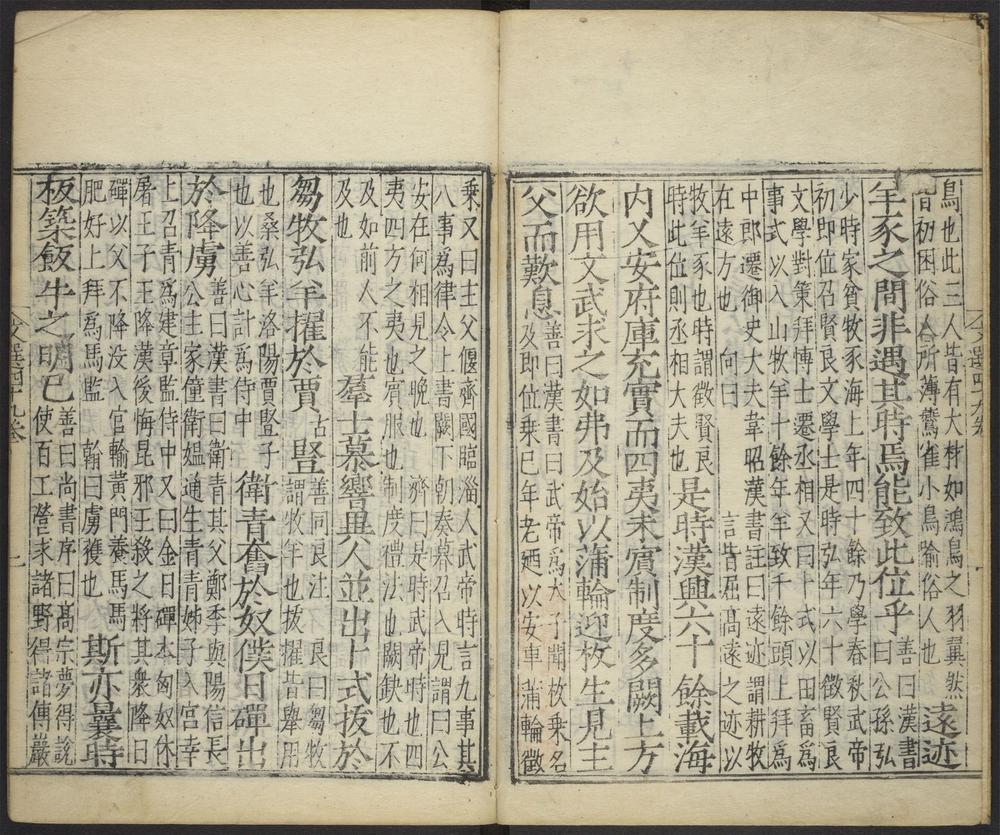 鳥也此三人皆有大材如鴻鳥之羽翼然
皆初困俗人合所薄鷰雀小鳥喻俗人也
遠迹
羊豕之間非遇其時焉能致此位乎
善曰漢書
曰公孫弘
少時家貧牧豕海上年四十餘乃學春秋武帝
初即位召賢良文學士是時弘年六十徵賢良
文學對策拜博士遷丞相又曰卜式以田畜為
事式以入山牧羊十餘年羊致千餘頭上拜為
中郎遷御史大夫韋昭漢書註曰遠迹謂耕牧
在遠方也 向曰 言皆屈高遠之迹以
牧羊豕也時謂徵賢良
時此位則丞相大夫也
是時漢興六十餘載海
內乂安府庫充實而四夷未賓制度多闕上方
欲用文武求之如弗及始以蒲輪迎枚生見主
父而歎息
善曰漢書曰武帝為太子聞枚乗名
及即位乗已年老廼以安車蒲輪徵
乗又曰主父偃齊國臨淄人武帝時言九事其
八事為律令上書闕下朝奏暮召入見謂曰公
安在何相見之晚也 濟曰是時武帝時也四
夷四方之夷也賓服也制度禮法也闕缺也不
及如前人不能
及也
羣士慕響異人並出卜式拔於
芻牧弘羊擢於賈古竪
善同良注 良曰芻牧
謂牧羊也拔擢皆舉用
也桑弘羊洛陽賈豎子
也以善心計為侍中
衛青奮於奴僕日磾出
於降虜
善曰漢書曰衛青其父鄭季與陽信長
公主家僮衛媼通生青青姊子入宮幸
上召青為建章監侍中又曰金日磾本匈奴休
屠王子王降漢後悔昆邪王殺之將其衆降日
磾以父不降没入官輸黃門養馬馬
肥好上拜為馬監 翰曰虜獲也
斯亦曩時
板築飯牛之明已
善曰尚書序曰髙宗夢得說
使百工營求諸野得諸傅巖
文選四十九卷